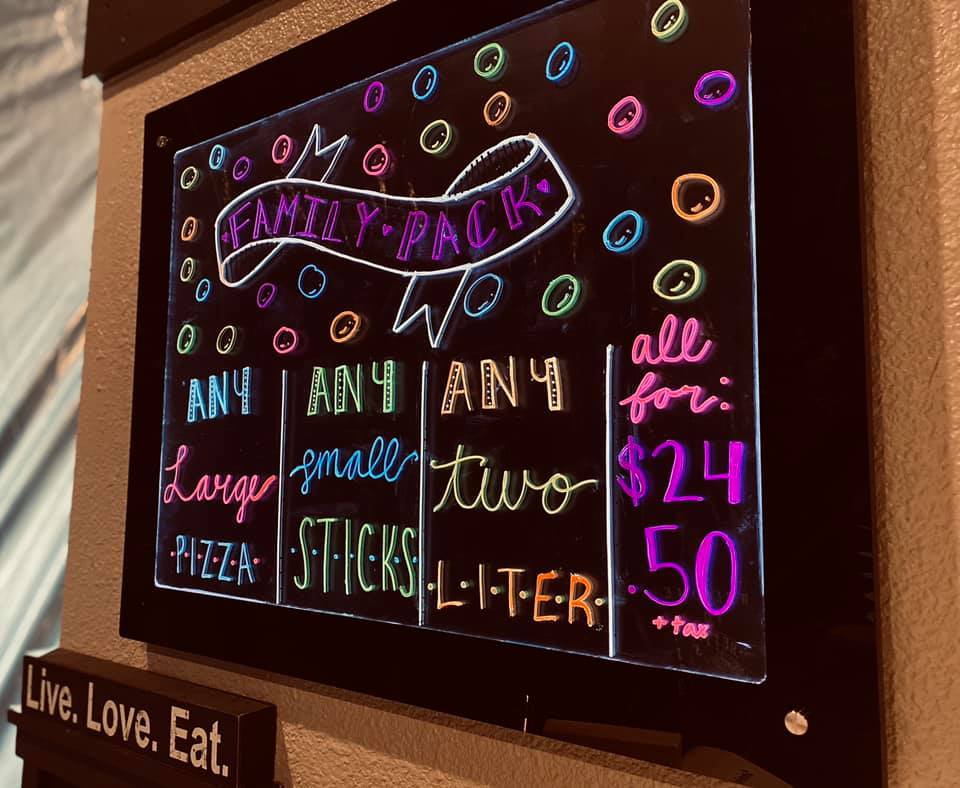 FAMILY PACK
ANY
Large
PIZZA
ANY
small
STICKS
ANY
two
LITER
all
for:
$24
.50
+ tax
Live. Love. Eat.